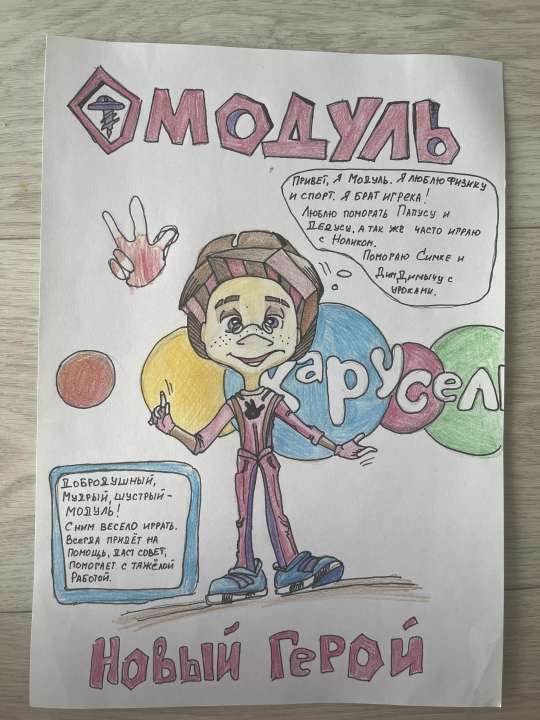 МОДУЛЬ
Привет, я Модуль. Я люблю физику
и спорт. Я брат Игрека!
Люблю помогать Папусу и
Дедусу, а так же часто играю
с Ноликом.
Помогаю Симке и
ДимДимычу с
уроками.
Карусель
Добродушный,
Мудрый, шустрый-
Модуль!
С ним весело играть.
Всегда придёт на
помощь, даст совет,
помогает с тяжёлой
работой.
Новый Герой